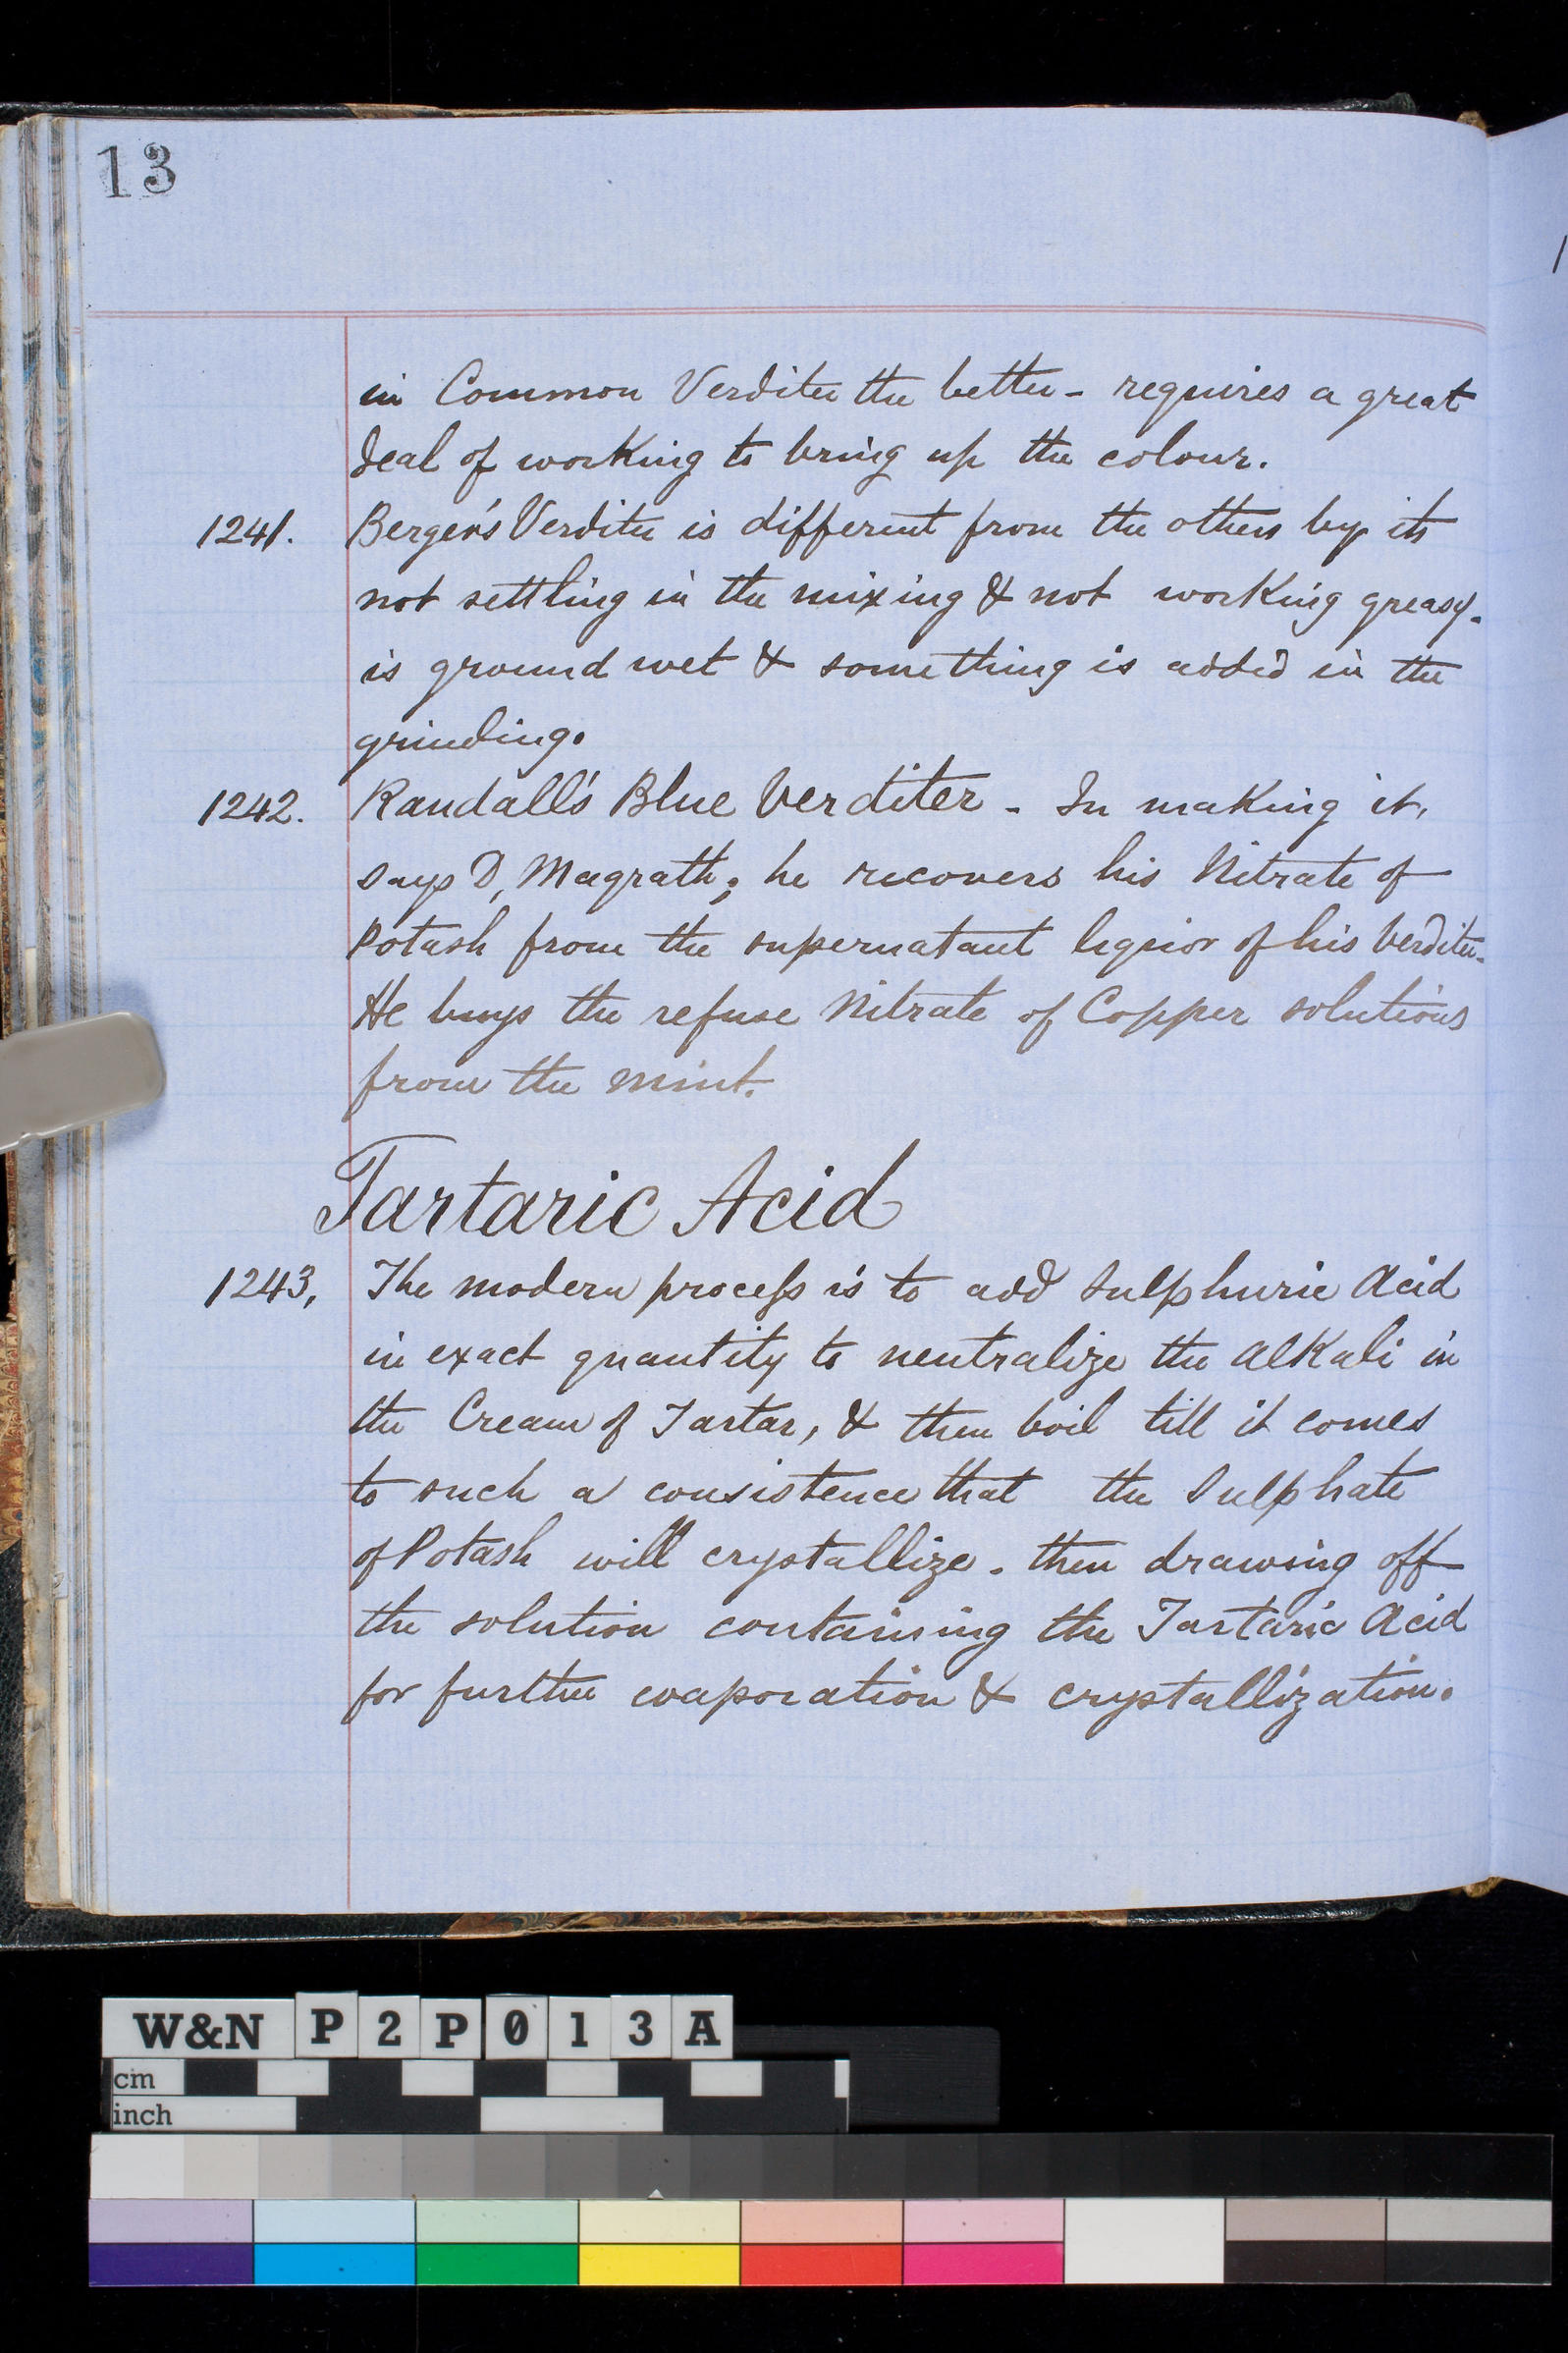 13
in Common Verditer the better - requires a great
deal of working to bring up the colour.
1241. Berger's Verditer is different from the others by its
not settling in the mixing & not working greasy.
is ground wet & something is added in the
grinding.
1242. Randall's Blue Verditer - In making it,
says D, Magrath; he recovers his Nitrate of
Potash from the supernatant liquor of his Verditer.
He buys the refuse Nitrate of Copper solutions
from the mint.
Tartaric Acid
1243, The modern process is to add Sulphuric Acid
in exact quantity to neutralize the Alkali in
the Cream of Tartar, & then boil till it comes
to such a consistence that the Sulphate
of Potash will crystallize. then drawing off
the solution containing the Tartaric Acid
for further evaporation & crystallization.
W&N P2P013A
cm
inch